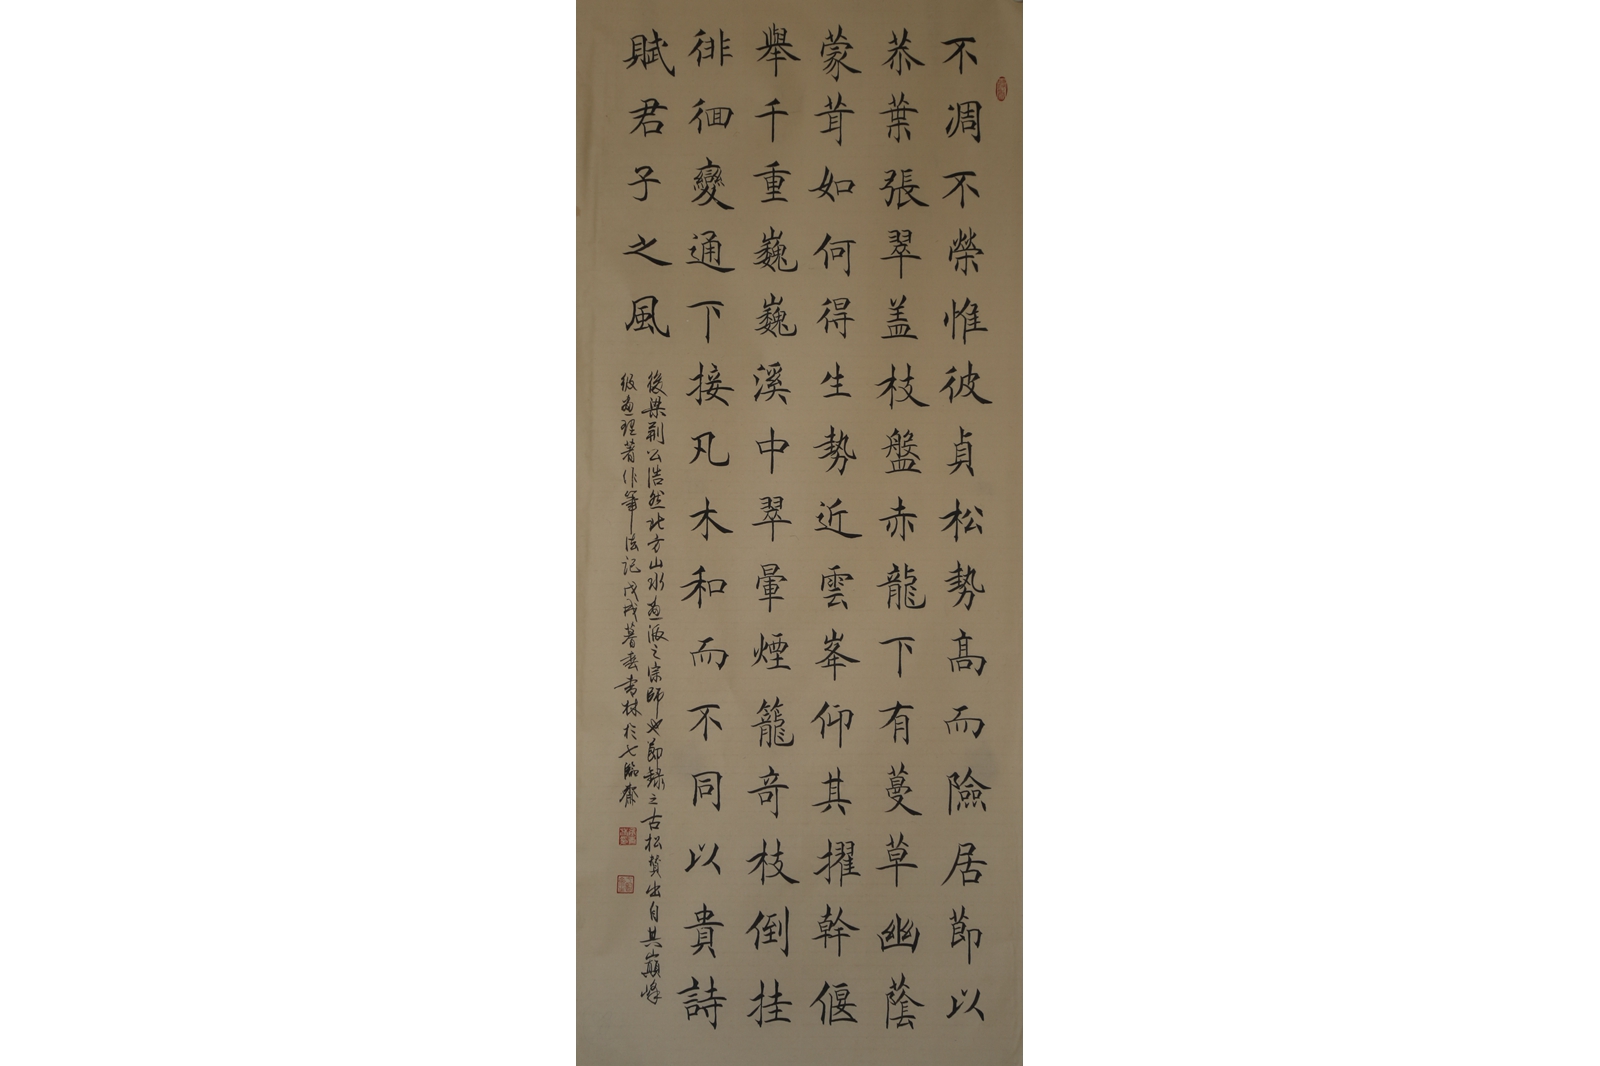 不凋不榮惟彼貞松勢高而險居節以
恭葉張翠盖枝盤赤龍下有蔓草幽蔭
蒙茸如何得生勢近雲峯仰其擢幹偃
舉千重巍巍溪中翠暈煙籠奇枝倒挂
徘徊變通下接凡木和而不同以貴詩
賦君子之風
後梁荊公浩然北方山水畫派之宗師也節錄之古松贊出自其巔峰
级畫理著作筆法記戊戌暮春書林於七臨齋